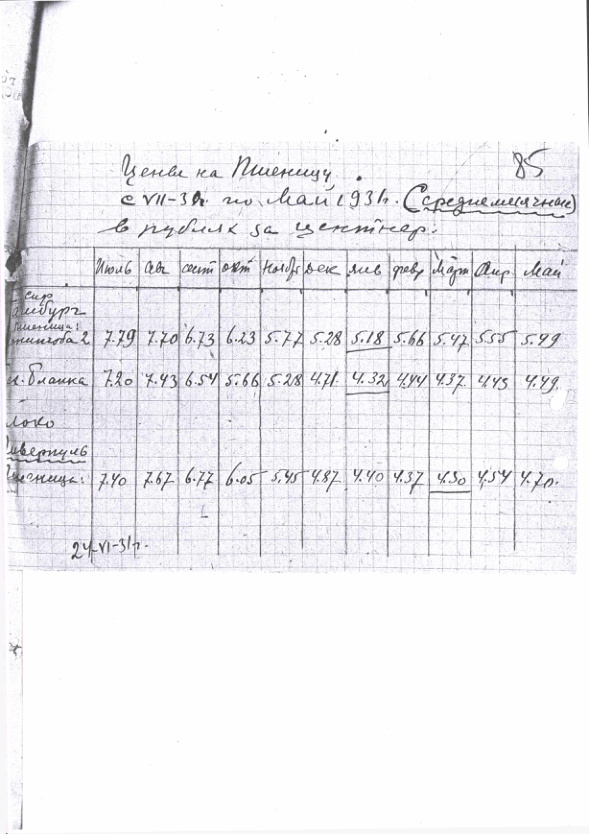 85
Цены на Пшеницу
с VII-30г. по Май 1931г. (среднемесячные)
в рублях за центнер.
Июль Авг сент окт Ноябр Дек янв февр Март Апр Май
сиф
амбург
пшеница:
2 7.79 7.70 6.73 6.23 5.77 5.28 5.18 5.66 5.47 5.55 5.49
бланка 7.20 7.43 6.54 5.66 5.28 4.71 4.32 4.44 4.37 4.43 4.49
локо
иверпуль
шеница: 7.40 7.67 6.77 6.05 5.45 4.87 4.40 4.37 4.30 4.54 4.70
24-VI-31г.